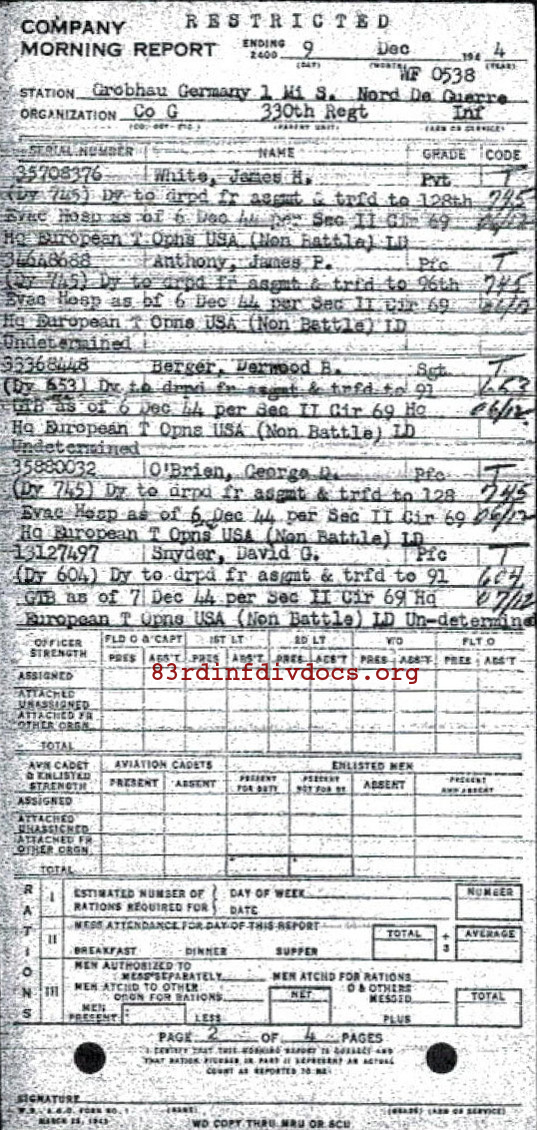 RESTRICTED
COMPANY
MORNING REPORT ENDING 2400 9 Dec 194 4
(DAY) (MONTH) (YEAR)
WF 0538
STATION Grobhau Germany 1 Mi S. Nord De Guerre
ORGANIZATION Co G 330th Regt Inf
(PARENT UNIT) (ARM OR SERVICE)
SERIAL NUMBER NAME GRADE CODE
35708376 White, James H. Pvt T
(Dy 745) Dy to drpd fr asgmt & trfd to 128th 745
Evac Hosp as of 6 Dec 44 per Sec II Cir 69 06/12
Hq European T Opns USA (Non Battle) LD
34648688 Anthony, James P. Pfc T
(Dy 745) Dy to drpd fr asgmt & trfd to 96th 745
Evac Hosp as of 6 Dec 44 per Sec II Cir 69 06/12
Hq European T Opns USA (Non Battle) LD
Undetermined
33368448 Berger, Derwood B. Sgt T
(Dy 653) Dy to drpd fr asgmt & trfd to 91 653
GTB as of 6 Dec 44 per Sec II Cir 69 Hq 06/12
Hq European T Opns USA (Non Battle) LD
Undetermined
35880032 O'Brien, George D. Pfc T
(Dy 745) Dy to drpd fr asgmt & trfd to 128 745
Evac Hosp as of 6 Dec 44 per Sec II Cir 69 06/12
Hq European T Opns USA (Non Battle) LD
13127497 Snyder, David G. Pfc T
(Dy 604) Dy to drpd fr asgmt & trfd to 91 604
GTB as of 7 Dec 44 per Sec II Cir 69 Hq 07/12
European T Opns USA (Non Battle) LD Un-determined
OFFICER STRENGTH FLD O & CAPT 1ST LT 2D LT W O FLT O
PRES ABS'T PRES ABS'T PRES ABS'T PRES ABS'T PRES ABS'T
83rdinfdivdocs.org
ASSIGNED
ATTACHED UNASSIGNED
ATTACHED FR OTHER ORGN.
TOTAL
AVN CADET & ENLISTED STRENGTH AVIATION CADETS ENLISTED MEN
PRESENT ABSENT PRESENT FOR DUTY PRESENT NOT FOR DY ABSENT PRESENT AND ABSENT
ASSIGNED
ATTACHED UNASSIGNED
ATTACHED FR OTHER ORGN.
TOTAL
RATIONS
I ESTIMATED NUMBER OF RATIONS REQUIRED FOR DAY OF WEEK NUMBER
DATE
II MESS ATTENDANCE FOR DAY OF THIS REPORT TOTAL ÷ 3 AVERAGE
BREAKFAST DINNER SUPPER
III MEN AUTHORIZED TO MESS SEPARATELY MEN ATCHD FOR RATIONS
MEN ATCHD TO OTHER ORGN FOR RATIONS NET O & OTHERS MESSED TOTAL
MEN PRESENT LESS PLUS
PAGE 2 OF 4 PAGES
I CERTIFY THAT THIS MORNING REPORT IS CORRECT AND
THAT RATION FIGURES IN PART II REPRESENT AN ACTUAL
COUNT AS REPORTED TO ME.
SIGNATURE
W.D., A.G.O. FORM NO. 1 (NAME) (GRADE) (ARM OR SERVICE)
MARCH 25, 1943
WD COPY THRU MRU OR SCU